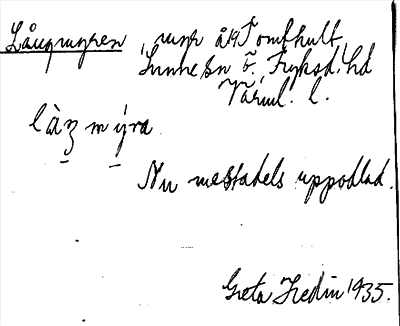 Långmyren, myr åt Tomthult,
Sunne sn Ö. Fryksd. hd
Värml. l.
làŋ mýra
Nu mestadels uppodlad.
Greta Hedin 1935.